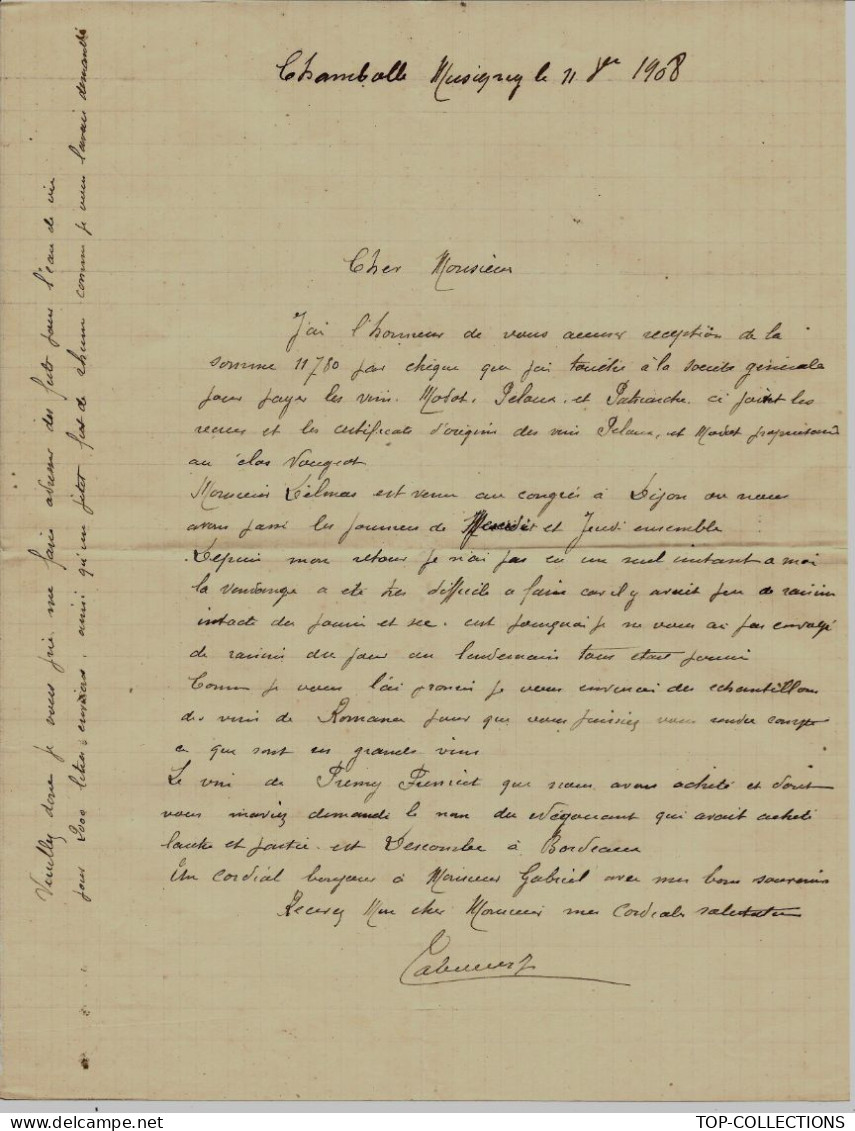 Chambolle Musigny le 11 1908
Cher Monsieur
J'ai l'honneur de vous accuser reception de la
somme 11780 par chèque que j'ai touché à la societé générale
pour payer les vins. Modot, Pelaux, et Patriarche ci joint les
recus et les certificats d'origine des vins Pelaux, et Modot propriétaire
au clos Vougeot
Monsieur Delmas est venu au congrès à Dijon ou nous
avons passé les journées de et Jeudi ensemble
Depuis mon retour je n'ai pas eu un seul instant a moi
la vendange a eté très difficile a faire car il y avait peu de raisin
intacte du pourri et sec. cest pourquoi je ne vous ai pas envoyé
de raisin du jour au lendemain tous était pourri
Comme je vous l'ai promis je vous enverrai des echantillons
des vins de Romanée pour que vous puissiez vous rendre compte
ce que sont ces grands vins
Le vin de Premy que nous avons acheté et dont
vous m'aviez demandé le nom du Négociant qui avait acheté
lautre et partie est Descombe à Bordeaux
Un cordial bonjour à Monsieur Gabriel avec mes bons souvenirs
Recevez Mon cher Monsieur mes cordiales salutations
Veuillez donc je vous prie me faire adresser des futs pour l'eau de vie
pour 2000 litres environs, ainsi qu'un petit fut de rhum comme je vous l'avais demandé
TOP-COLLECTIONS